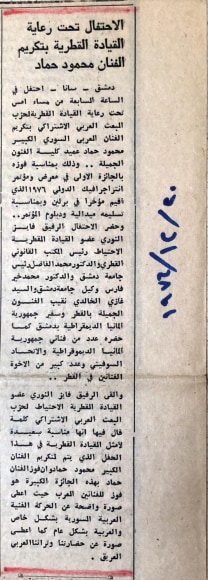 الاحتفال تحت رعاية
القيادة القطرية بتكريم
الفنان محمود حماد
دمشق - سانا - احتفل في
الساعة السابعة من مساء امس
تحت رعاية القيادة القطرية لحزب
البعث العربي الاشتراكي بتكريم
الفنان العربي السوري الكبير
محمود حماد عميد كلية الفنون
الجميلة .. وذلك بمناسبة فوزه
بالجائزة الاولى في معرض ومؤتمر
انترجرافيك الدولي ١٩٧٦ الذي
اقيم مؤخرا في برلين وبمناسبة
تسليمه ميدالية ودبلوم المؤتمر..
وحضر الاحتفال الرفيق فايز
النوري عضو القيادة القطرية
الاحتياط رئيس المكتب القانوني
القطري والدكتور محمد الفاضل رئيس
جامعة دمشق والدكتور محمد خير
فارس وكيل جامعة دمشق والسيد
غازي الخالدي نقيب الفنون
الجميلة بالقطر وسفير جمهورية
المانيا الديمقراطية بدمشق كما
حضره عدد من فناني جمهورية
المانيا الديموقراطية والاتحاد
السوفيتي وعدد كبير من الاخوة
الفنانين في القطر ..
والقى الرفيق فايز النوري عضو
القيادة القطرية الاحتياط لحزب
البعث العربي الاشتراكي كلمة
قال فيها انها مناسبة سعيدة
لامثل القيادة القطرية في هذا
الحفل الذي يتم لتكريم الفنان
الكبير محمود حماد وان فوز الفنان
حماد بهذه الجائزة الكبيرة هو
فوز للفنانين العرب حيث اعطى
صورة واضحة عن الحركة الفنية
العربية السورية بشكل خاص
والعربية بشكل عام كما اعطى
صورة عن حضارتنا وتراثنا العربي
العريق .